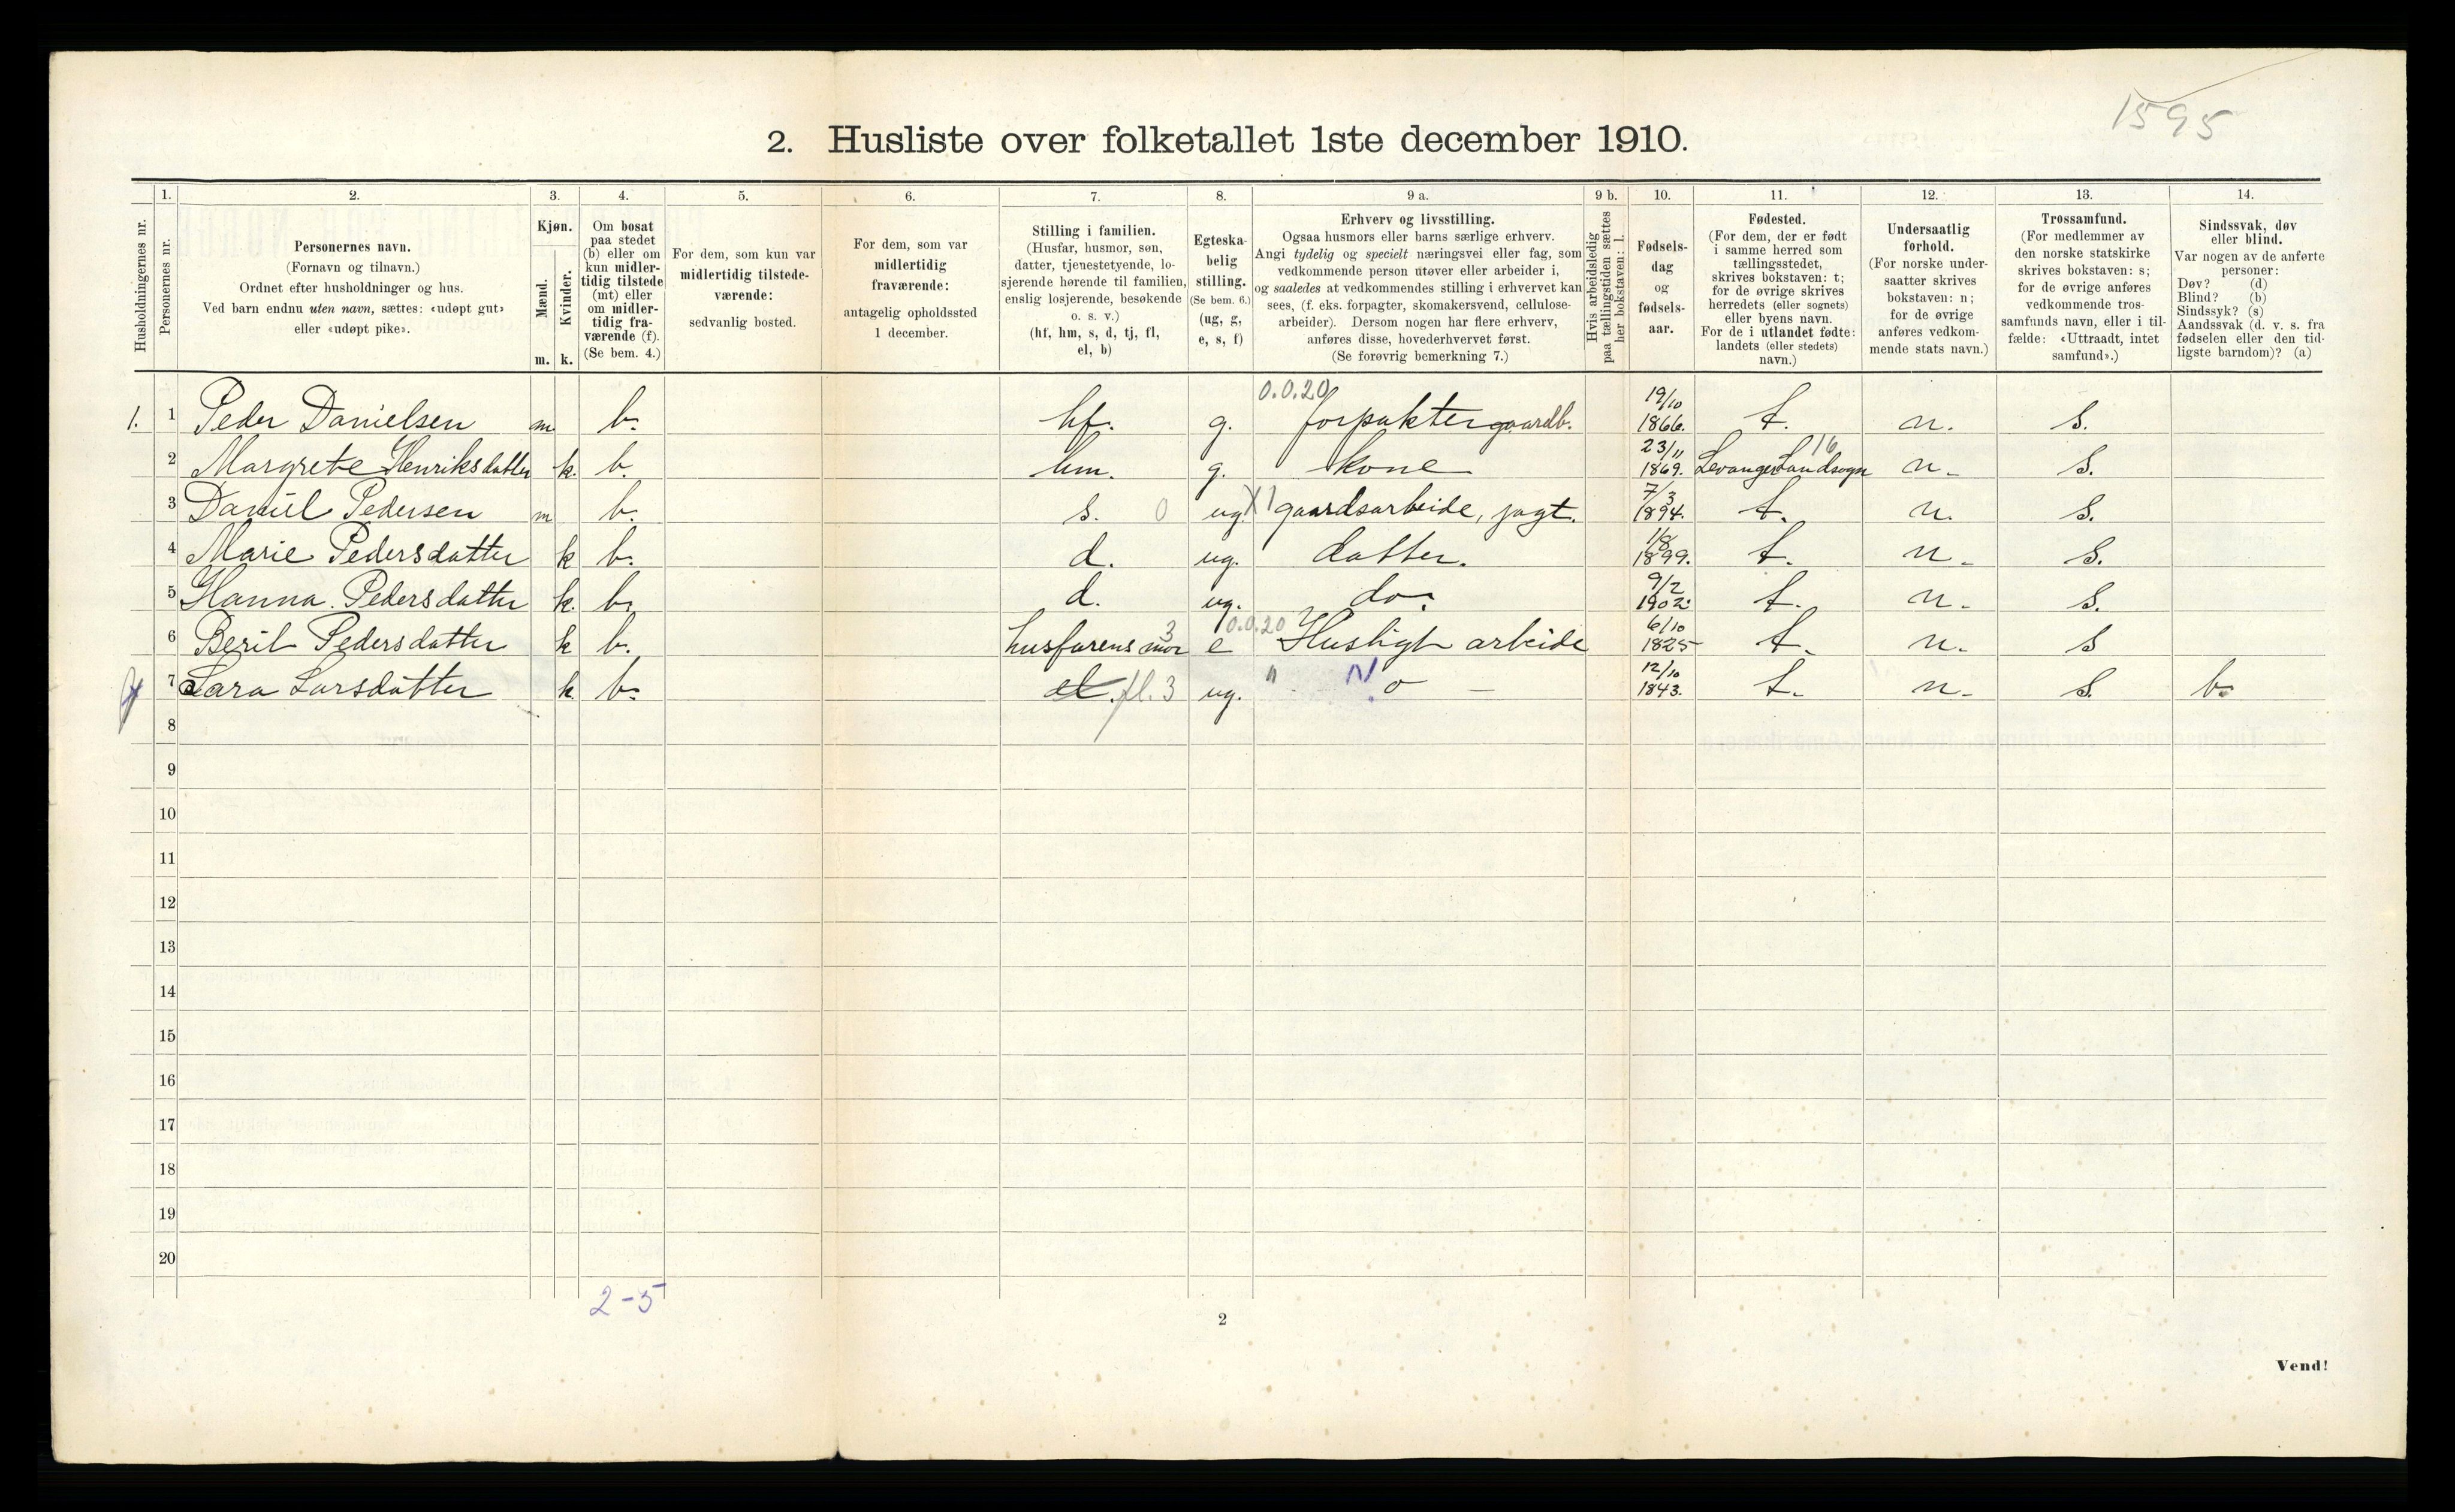 1595
2. Husliste over folketallet 1ste december 1910.
1. 2. 3. 4. 5. 6. 7. 8. 9 a. 9 b. 10. 11. 12. 13. 14.
Husholdningernes nr.
Personernes nr.
Personernes navn.
(Fornavn og tilnavn.)
Ordnet efter husholdninger og hus.
Ved barn endnu uten navn, sættes: «udøpt gut»
eller «udøpt pike».
Kjøn.
Mænd.
Kvinder.
m. k.
Om bosat
paa stedet
(b) eller om
kun midler-
tidig tilstede
(mt) eller
om midler-
tidig fra-
værende (f).
(Se bem. 4.)
For dem, som kun var
midlertidig tilstede-
værende:
sedvanlig bosted.
For dem, som var
midlertidig
fraværende:
antagelig opholdssted
1 december.
Stilling i familien.
(Husfar, husmor, søn,
datter, tjenestetyende, lo-
sjerende hørende til familien,
enslig losjerende, besøkende
o. s. v.)
(hf, hm, s, d, tj, fl,
el, b)
Egteska-
belig
stilling.
(Se bem. 6.)
(ug, g,
e, s, f)
Erhverv og livsstilling.
Ogsaa husmors eller barns særlige erhverv.
Angi tydelig og specielt næringsvei eller fag, som
vedkommende person utøver eller arbeider i,
og saaledes at vedkommendes stilling i erhvervet kan
sees, (f. eks. forpagter, skomakersvend, cellulose-
arbeider). Dersom nogen har flere erhverv,
anføres disse, hovederhvervet først.
(Se forøvrig bemerkning 7.)
Hvis arbeidsledig
paa tællingstiden sættes
her bokstaven: l.
Fødsels-
dag
og
fødsels-
aar.
Fødested.
(For dem, der er født
i samme herred som
tællingsstedet,
skrives bokstaven: t;
for de øvrige skrives
herredets (eller sognets)
eller byens navn.
For de i utlandet fødte:
landets (eller stedets)
navn.)
Undersaatlig
forhold.
(For norske under-
saatter skrives
bokstaven: n;
for de øvrige
anføres vedkom-
mende stats navn.)
Trossamfund.
(For medlemmer av
den norske statskirke
skrives bokstaven: s;
for de øvrige anføres
vedkommende tros-
samfunds navn, eller i til-
fælde: «Uttraadt, intet
samfund».)
Sindssvak, døv
eller blind.
Var nogen av de anførte
personer:
Døv? (d)
Blind? (b)
Sindssyk? (s)
Aandssvak (d. v. s. fra
fødselen eller den tid-
ligste barndom)? (a)
0.0.20
1. 1 Peder Danielsen m. b. hf. g. forpakter gaardb. 19/10 1866. t. n. s.
2 Margrete Henriksdatter k. b. hm. g. kone 23/11 1869. Levanger Landsogn 16 n. s.
3 Daniel Pedersen m b. s. 0 ug. X1 gaardsarbeide, jagt. 7/3 1894. t. n. s.
4 Marie Pedersdatter k b. d. ug. datter. 1/8 1899. t. n. s.
5 Hanna Pedersdatter k. b. d. ug. do. 9/2 1902. t. n. s.
6 Berit Pedersdatter k b. husfarens mor 3 e 0.0.20 Husligt arbeide 6/10 1825 t. n. s
7 Sara Larsdatter k b. el. fl. 3 ug. " N o – 12/10 1843. t. n. s. b.
8
9
10
11
12
13
14
15
16
17
18
19
20
2-5
2
Vend!